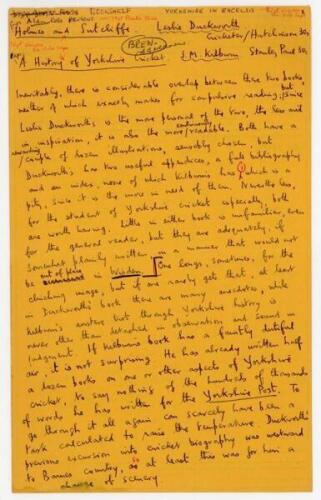 YORKSHIRE IN EXCELSIS
Holmes and Sutcliffe. Leslie Duckworth
Cricketer/Hutchinson 30s
A History of Yorkshire Cricket. J.M. Kilburn. Stanley Paul 30s
Inevitably, there is considerable overlap between these two books, but
neither of which exactly makes for compulsive reading. Since
Leslie Duckworth's is the more personal of the two, the less
in inspiration, it is also the more readable. Both have a
couple of dozen illustrations, sensibly chosen, but
Duckworth's has two useful appendices, a full bibliography
and an index, none of which Kilburn's has, which is a
pity, since it is the more in need of them. Nevertheless,
for the student of Yorkshire cricket especially, both
are worth having. Little in either book is unfamiliar, even
for the general reader, but they are adequately, if
somewhat plainly written in a manner that would not
be out of place in Wisden. One longs, sometimes, for the
clinching image, but if one rarely gets that, at least
in Duckworth's book there are many anecdotes, while
Kilburn's austere trot through Yorkshire history is
never other than detached in observation and sound in
judgment. If Kilburn's book has a faintly dutiful
air it is not surprising. He has already written half
a dozen books on one or other aspects of Yorkshire
cricket, to say nothing of the hundreds of thousands
of words he has written for the Yorkshire Post. To
go through it all again can scarcely have been a
task calculated to raise the temperature. Duckworth's
previous excursion into cricket biography was westward
to Barnes country, so at least this was for him a
change of scenery.